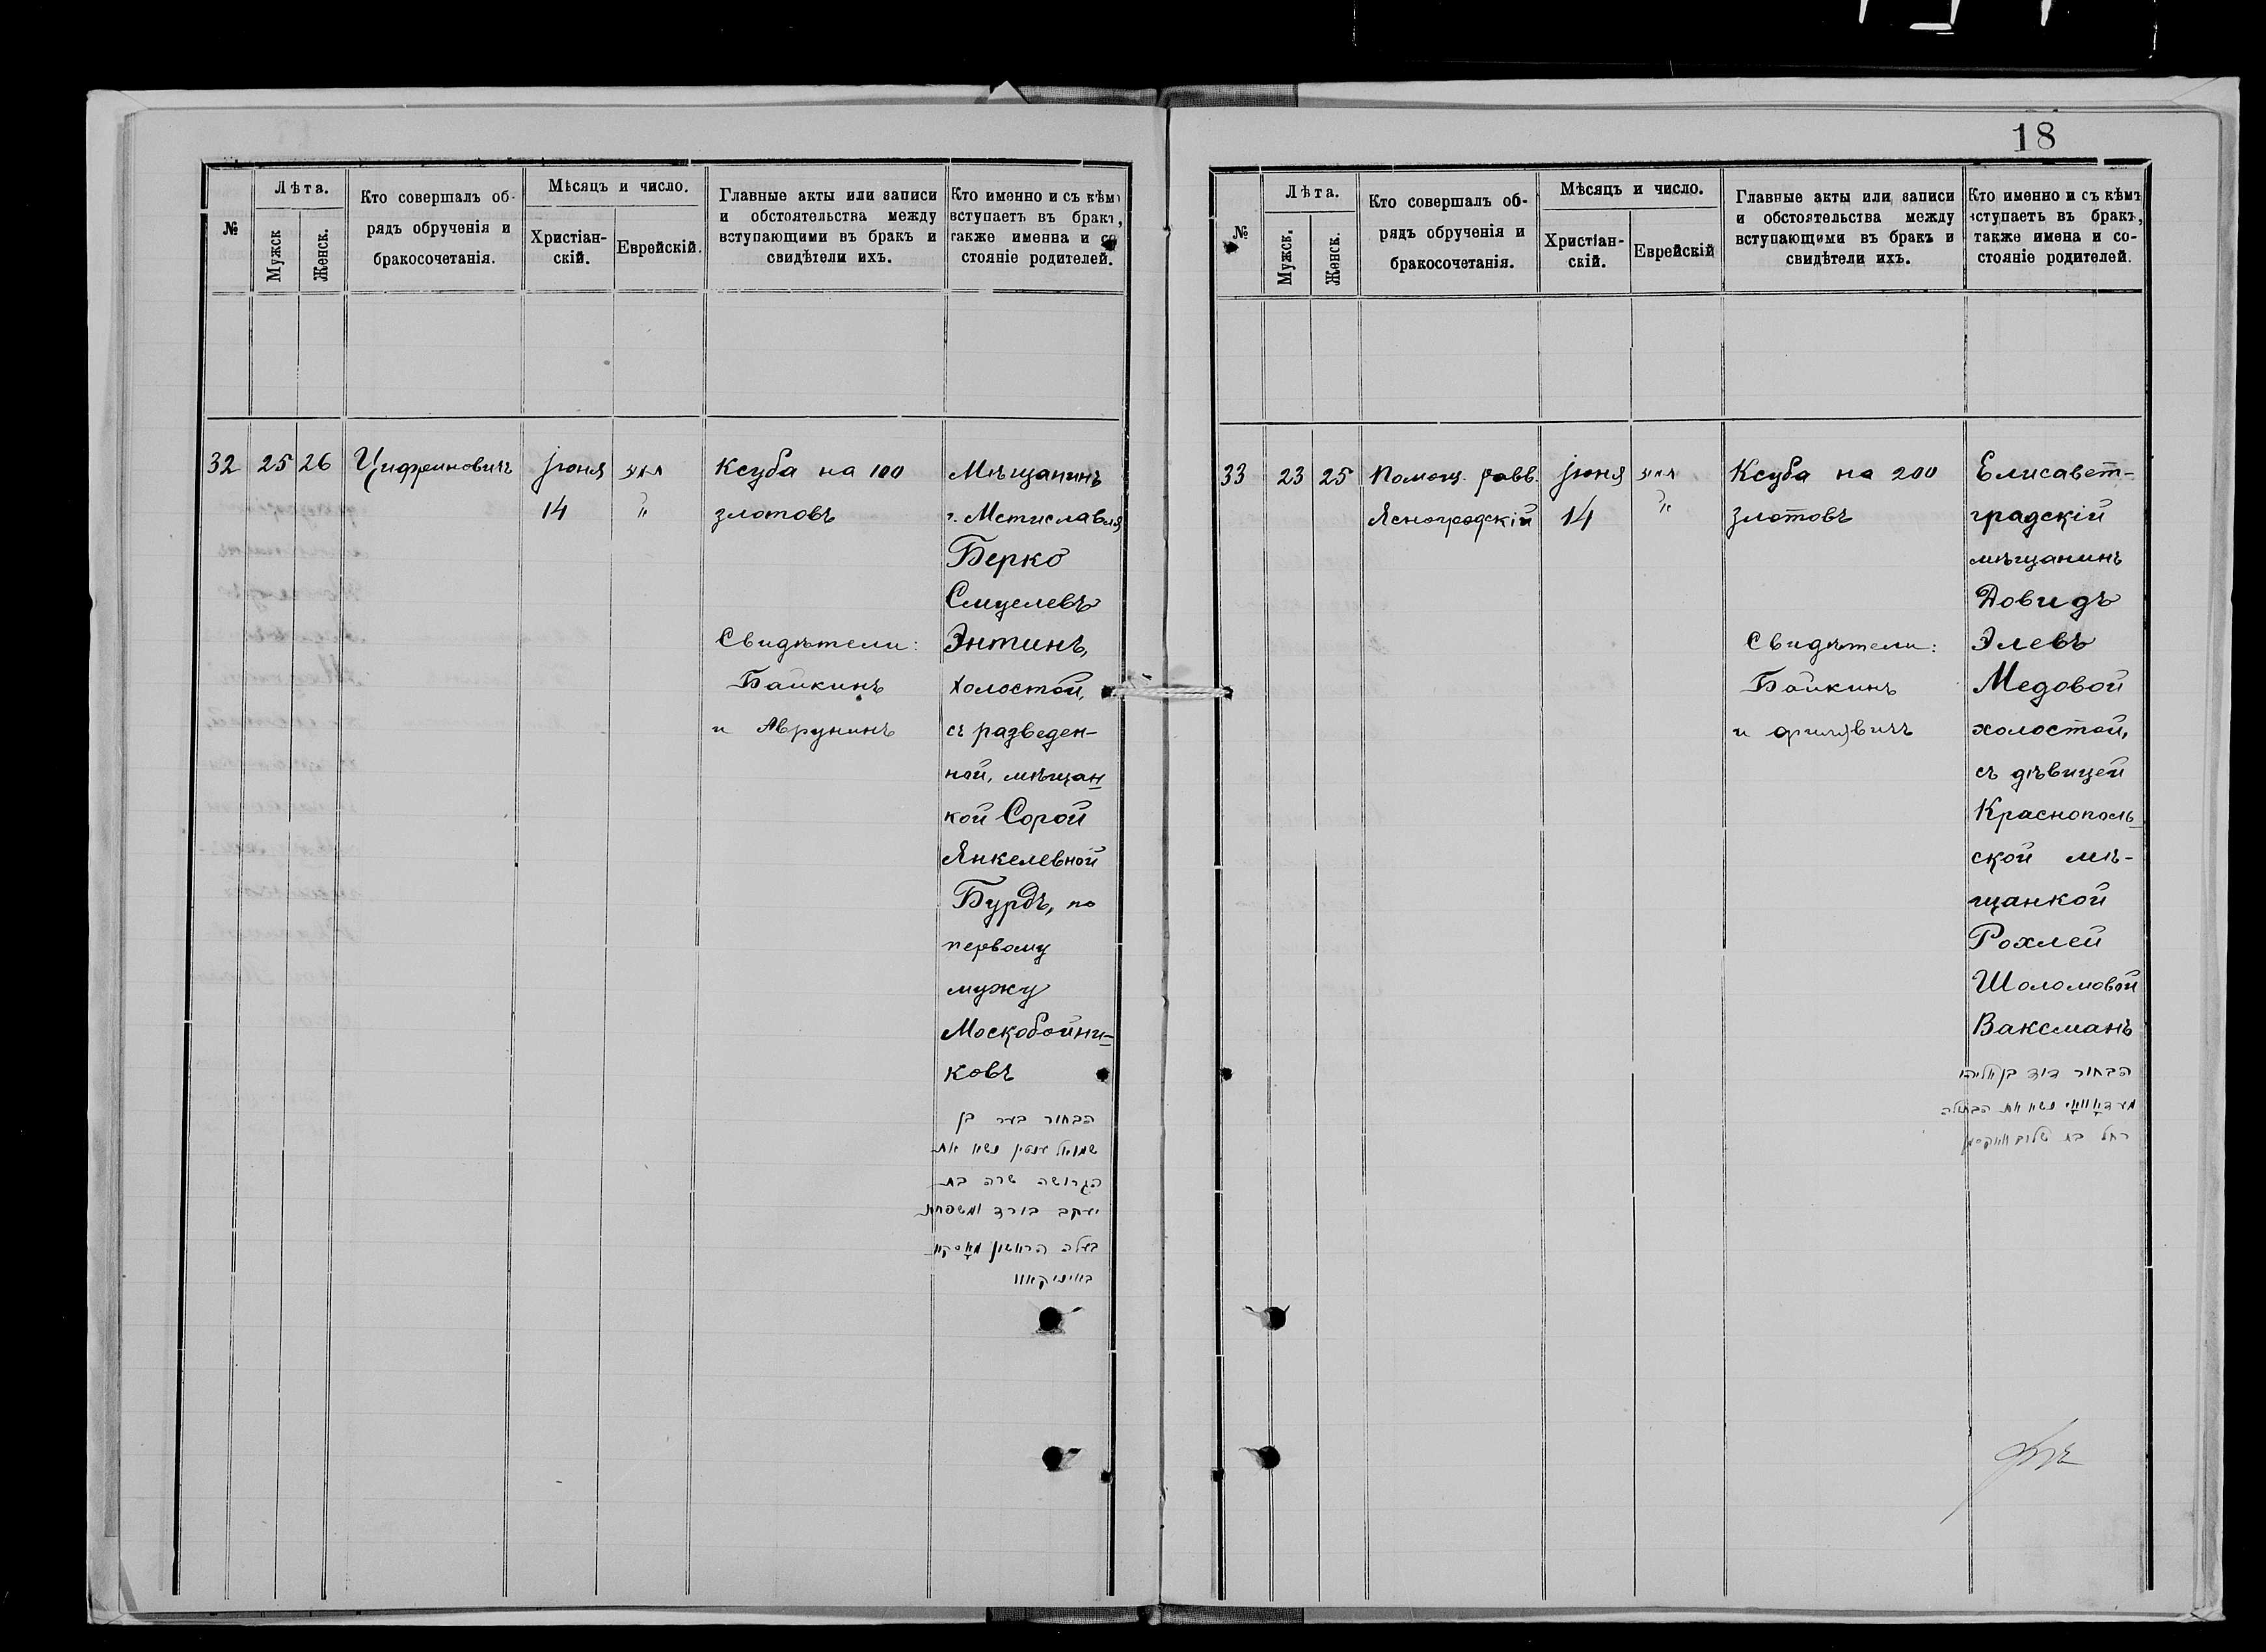 18
№
Лѣта.
Мужск
Женск.
Кто совершалъ об-
рядъ обрученія и
бракосочетанія.
Мѣсяцъ и число.
Христіан-
скій.
Еврейскій.
Главные акты или записи
и обстоятельства между
вступающими въ бракъ и
свидѣтели ихъ.
Кто именно и съ кѣмъ
вступаетъ въ бракъ,
также имена и со
стояніе родителей.
32
25
26
Цифринович
іюня
14
Ксуба на 100
злотовъ
Свидѣтели:
Байкинъ
и Аврунинъ
Мѣщанинъ
г. Мстиславля
Берко
Смулевъ
Энтинъ,
холостой,
съ разведен-
ной, мѣщан
кой Сорой
Янкелевной
Бурдъ, по
первому
мужу
Москобойни-
ковъ
הבחור בער בן
שמואל ענטין נשא את
הגרושה שרה בת
יעקב בורד ומשפחת
בעלה הראשון מאָסקא
באיניקאוו
№
Лѣта.
Мужск.
Женск.
Кто совершалъ об-
рядъ обрученія и
бракосочетанія.
Мѣсяцъ и число.
Христіан-
скій.
Еврейскій
Главные акты или записи
и обстоятельства между
вступающими въ бракъ и
свидѣтели ихъ.
Кто именно и съ кѣмъ
вступаетъ въ бракъ,
также имена и со-
стояніе родителей.
33
23
25
Помощ. равв.
Ясногродскій
іюня
14
Ксуба на 200
злотовъ
Свидѣтели:
Байкинъ
и
Елисавет-
градскій
мѣщанинъ
Довидъ
Элевъ
Медовой
холостой,
съ дѣвицей
Краснополь-
ской мѣ-
щанкой
Рохлей
Шоломовой
Ваксманъ
הבחור דוד בן אליהו
מעדאָוואָי נשא את הבתולה
רחל בת שלום וואקסמן